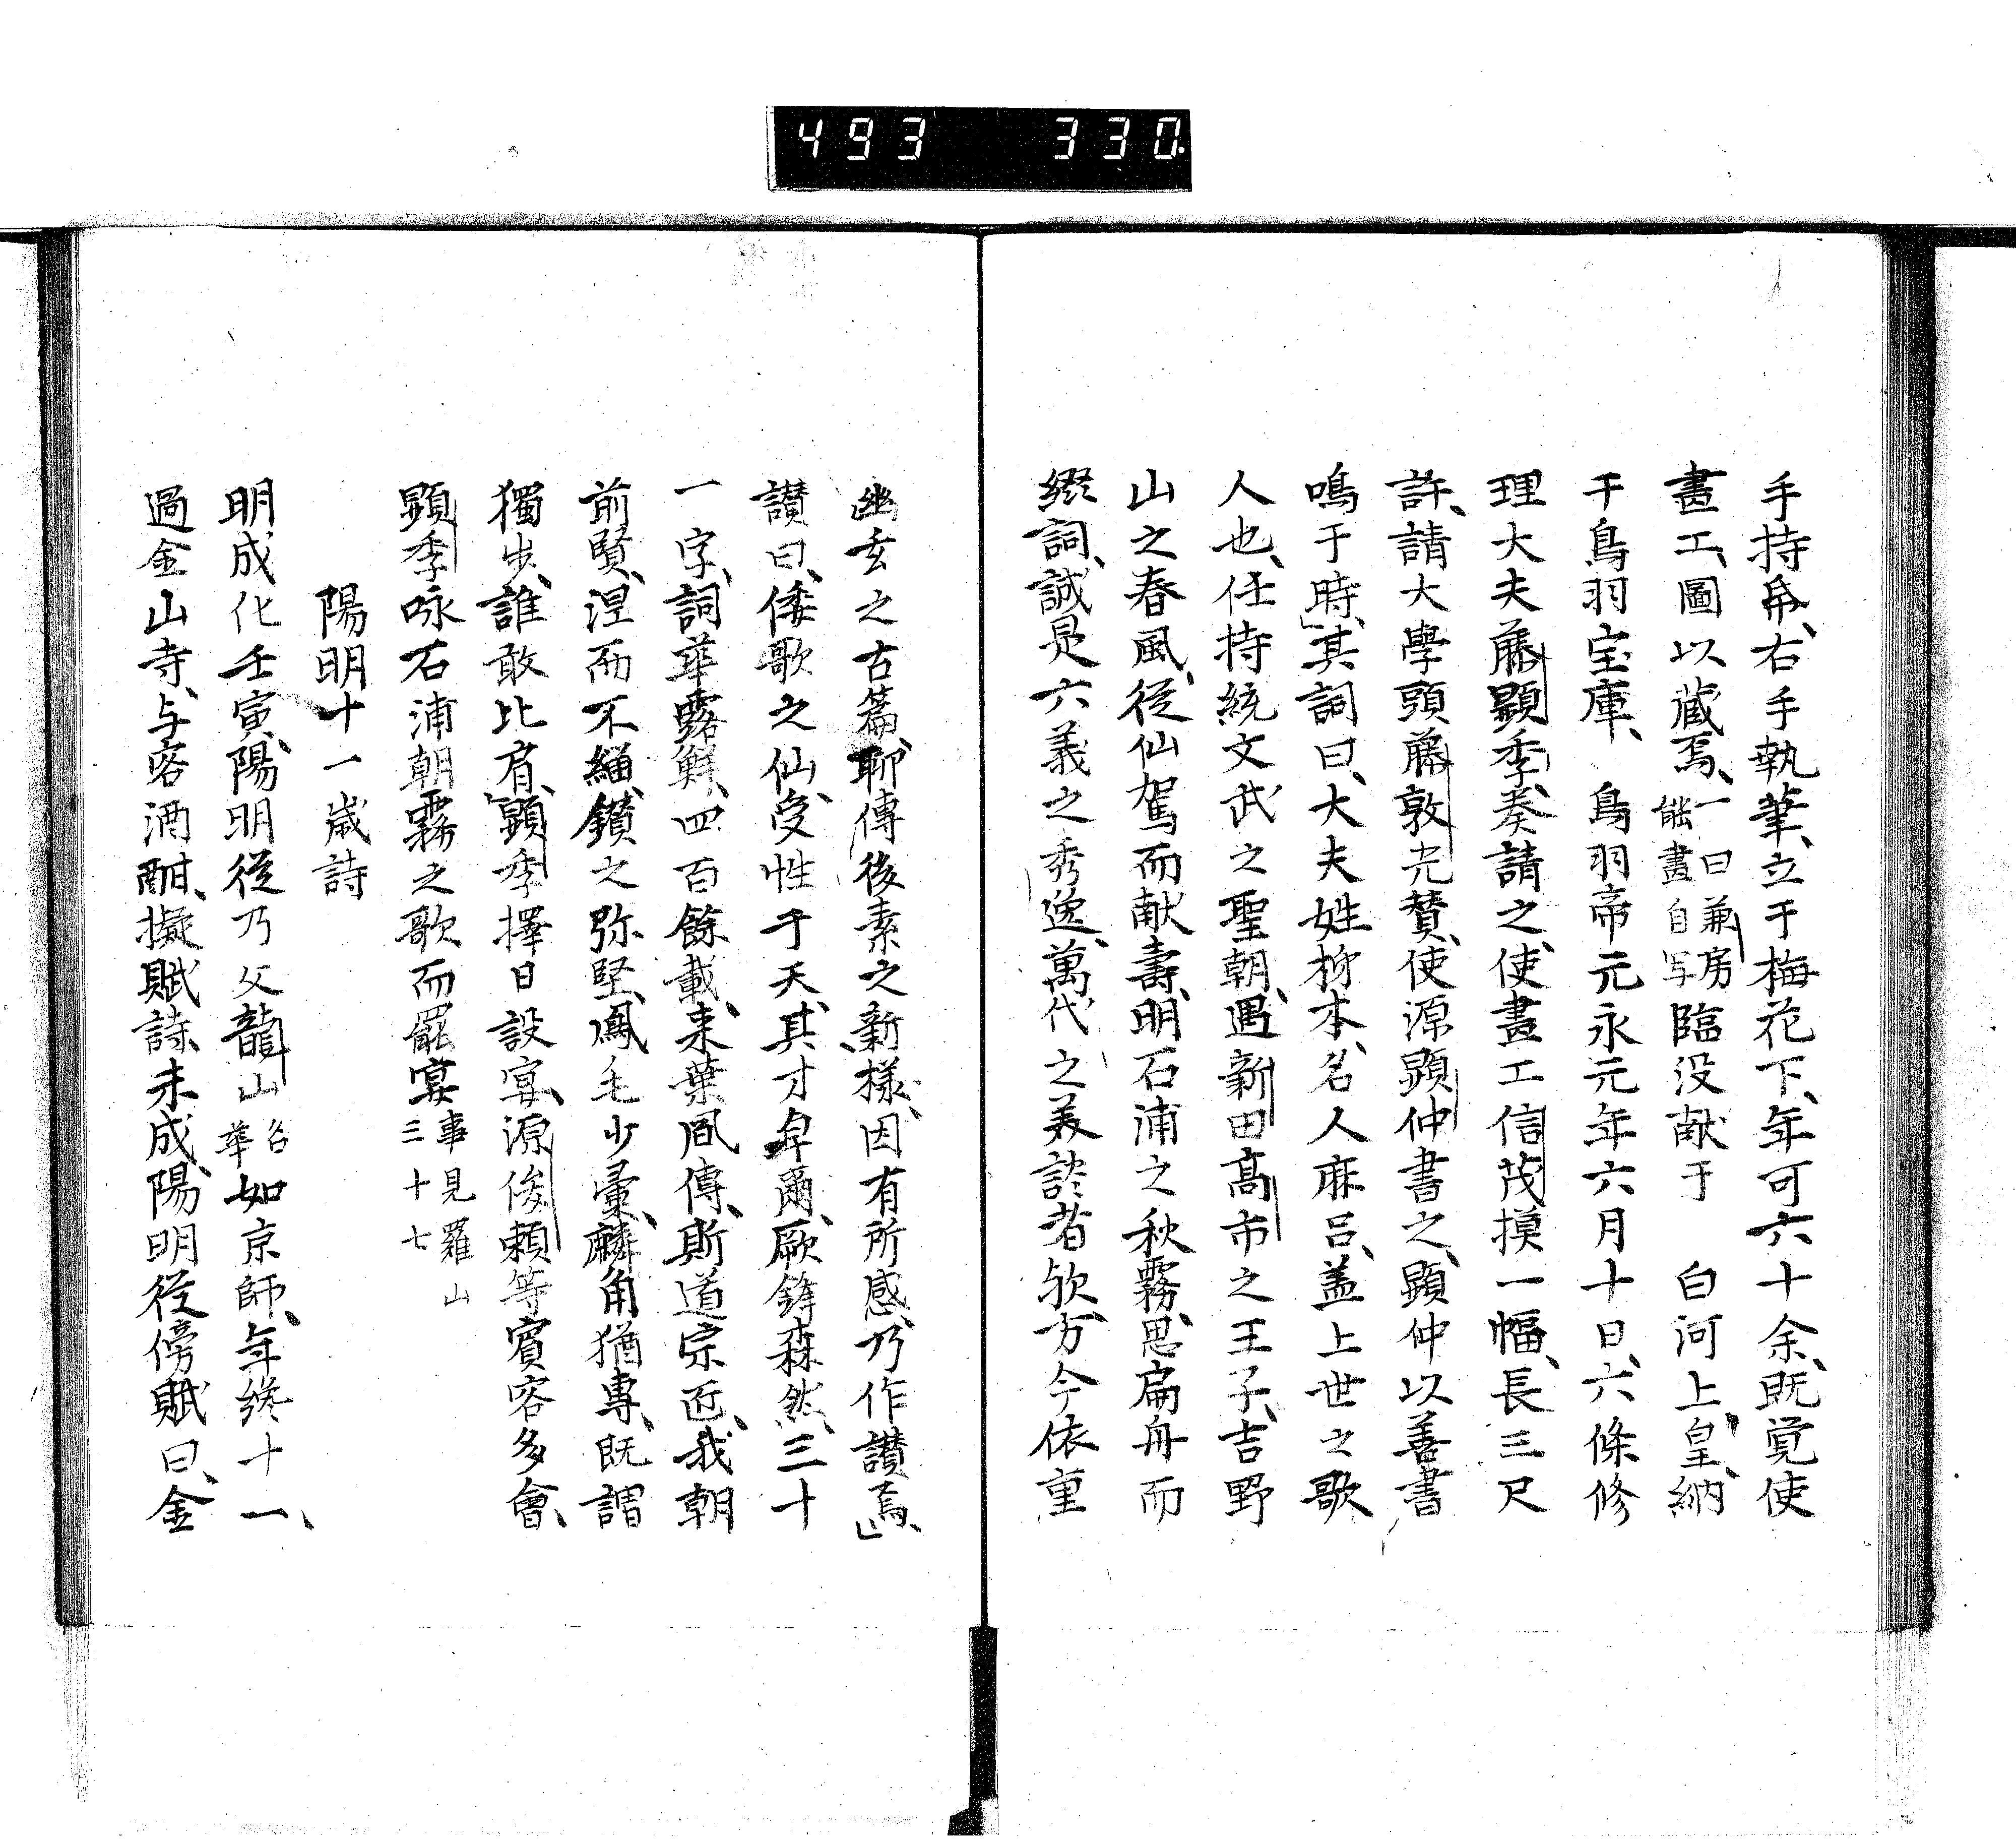 493 330.
手持帋、右手執筆、立于梅花下、年可六十余、既覚使
畫工、圖以蔵焉、一曰兼房能畫自写臨没献于 白河上皇、納
于鳥羽宝庫、 鳥羽帝元永元年六月十日、六條修
理大夫藤顕季、奏請之、使畫工信茂摸一幅、長三尺
許、請大學頭藤敦光賛、使源顕仲書之、顕仲以善書
鳴于時、其詞曰、大夫姓柿本、名人麻呂、盖上世之歌
人也、仕持統文武之聖朝、遇新田高市之王子、吉野
山之春風、従仙駕而献壽、明石浦之秋霧、思扁舟而
綴詞、誠是六義之秀逸、萬代之美談者欤、方今依重
幽玄之古篇、聊傳後素之新様、因有所感、乃作讃焉、」
讃曰、倭歌之仙、受性于天、其才卓爾、厥鋒森然、三十
一字、詞華露鮮、四百餘載、来葉風傳、斯道宗匠、我朝
前賢、涅而不緇、鑽之弥堅、鳳毛少彙、麟角猶專、既謂
獨歩、誰敢比肩、顕季擇日設宴、源俊頼等賓客多會、
顕季咏石浦朝霧之歌而罷宴事見羅山三十七
陽明十一歳詩
明成化壬寅、陽明従乃父龍山名華如京師、年纔十一、
過金山寺、与客酒酣、擬賦詩未成、陽明従傍賦曰、金